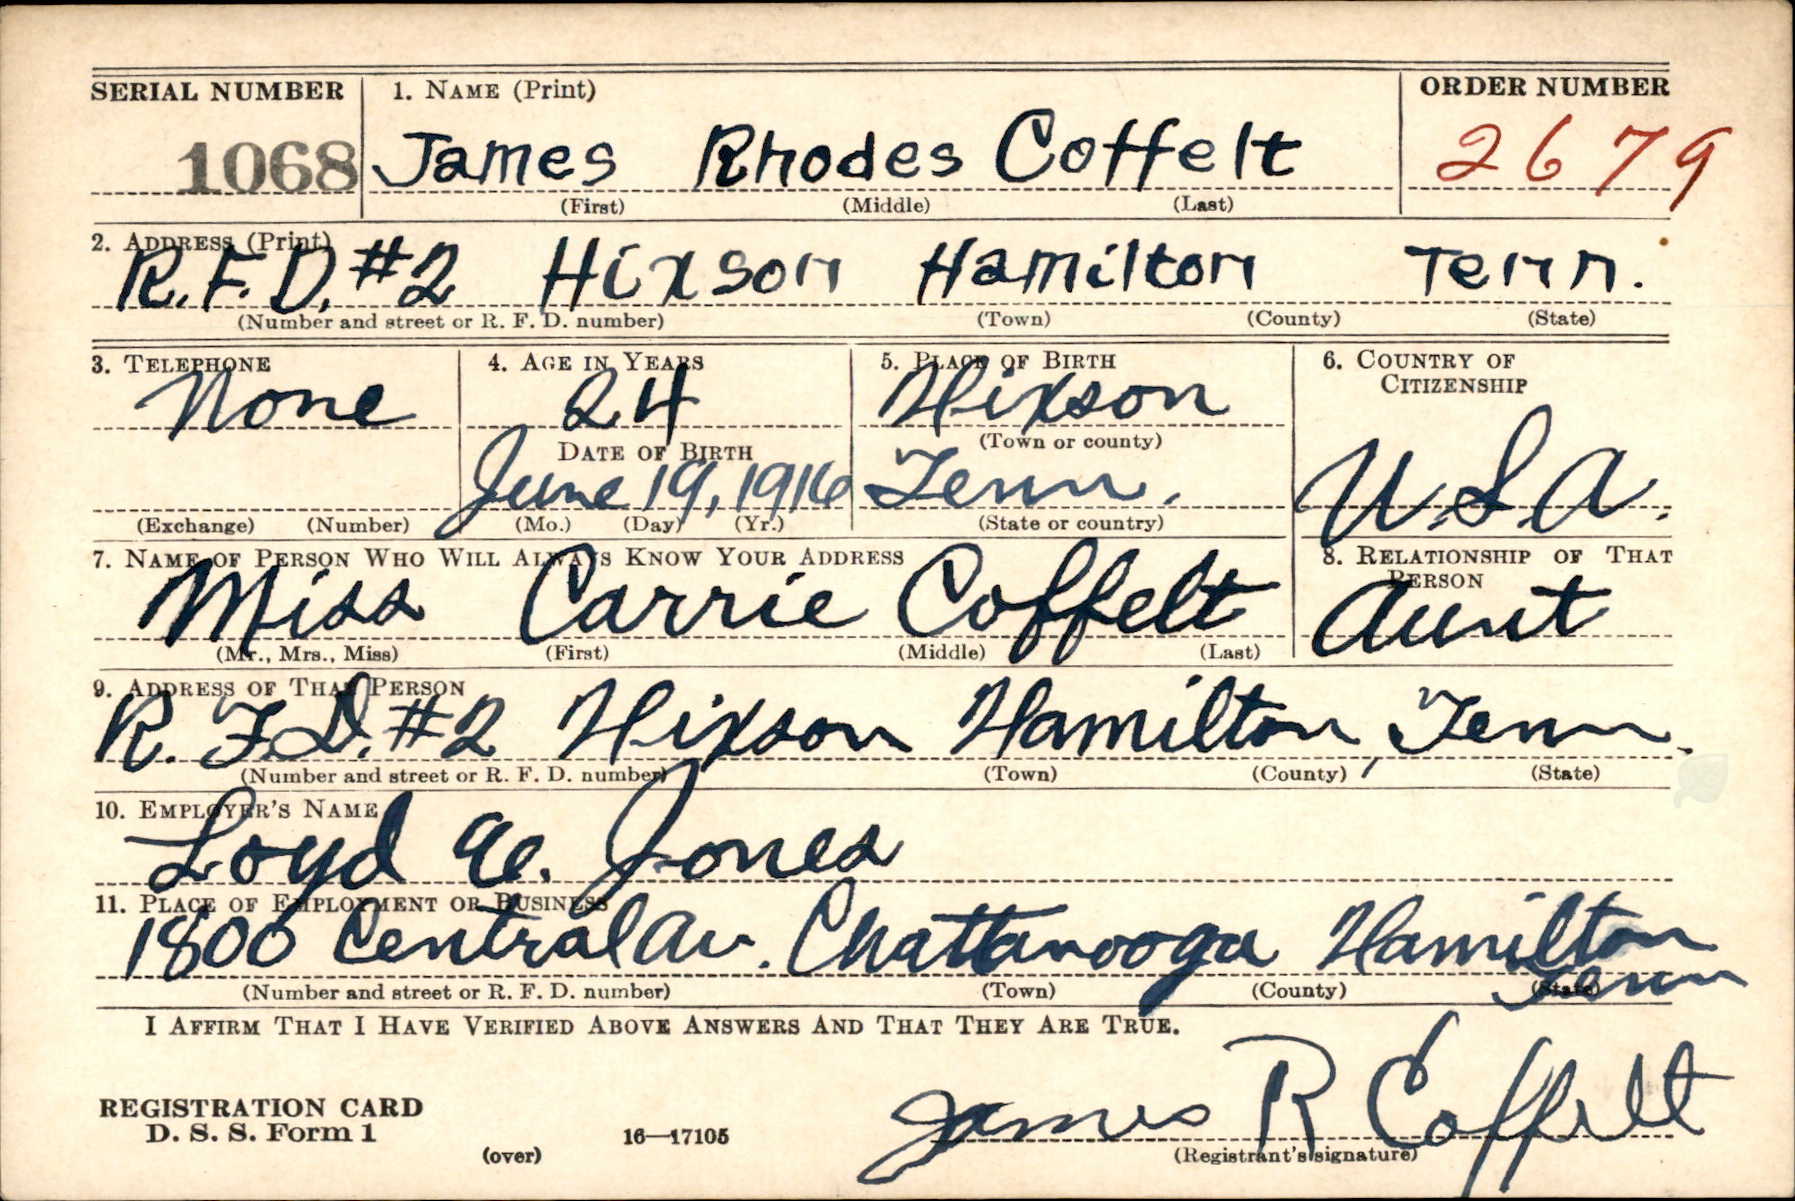 SERIAL NUMBER 1. NAME (Print) ORDER NUMBER
1068 James Rhodes Coffelt 2679
(First) (Middle) (Last)
2. ADDRESS (Print)
R.F.D. #2 Hixson Hamilton Tenn.
(Number and street or R. F. D. number) (Town) (County) (State)
3. TELEPHONE 4. AGE IN YEARS 5. PLACE OF BIRTH 6. COUNTRY OF CITIZENSHIP
None 24 Hixson
DATE OF BIRTH (Town or county)
June 19, 1916 Tenn. U.S.A.
(Exchange) (Number) (Mo.) (Day) (Yr.) (State or country)
7. NAME OF PERSON WHO WILL ALWAYS KNOW YOUR ADDRESS 8. RELATIONSHIP OF THAT PERSON
Miss Carrie Coffelt Aunt
(Mr., Mrs., Miss) (First) (Middle) (Last)
9. ADDRESS OF THAT PERSON
R.F.D. #2 Hixson Hamilton, Tenn.
(Number and street or R. F. D. number) (Town) (County) (State)
10. EMPLOYER'S NAME
Loyd E. Jones
11. PLACE OF EMPLOYMENT OR BUSINESS
1800 Central Av. Chattanooga Hamilton Tenn
(Number and street or R. F. D. number) (Town) (County) (State)
I AFFIRM THAT I HAVE VERIFIED ABOVE ANSWERS AND THAT THEY ARE TRUE.
REGISTRATION CARD
D. S. S. Form 1
(over) 16—17105 James R Coffelt
(Registrant's signature)